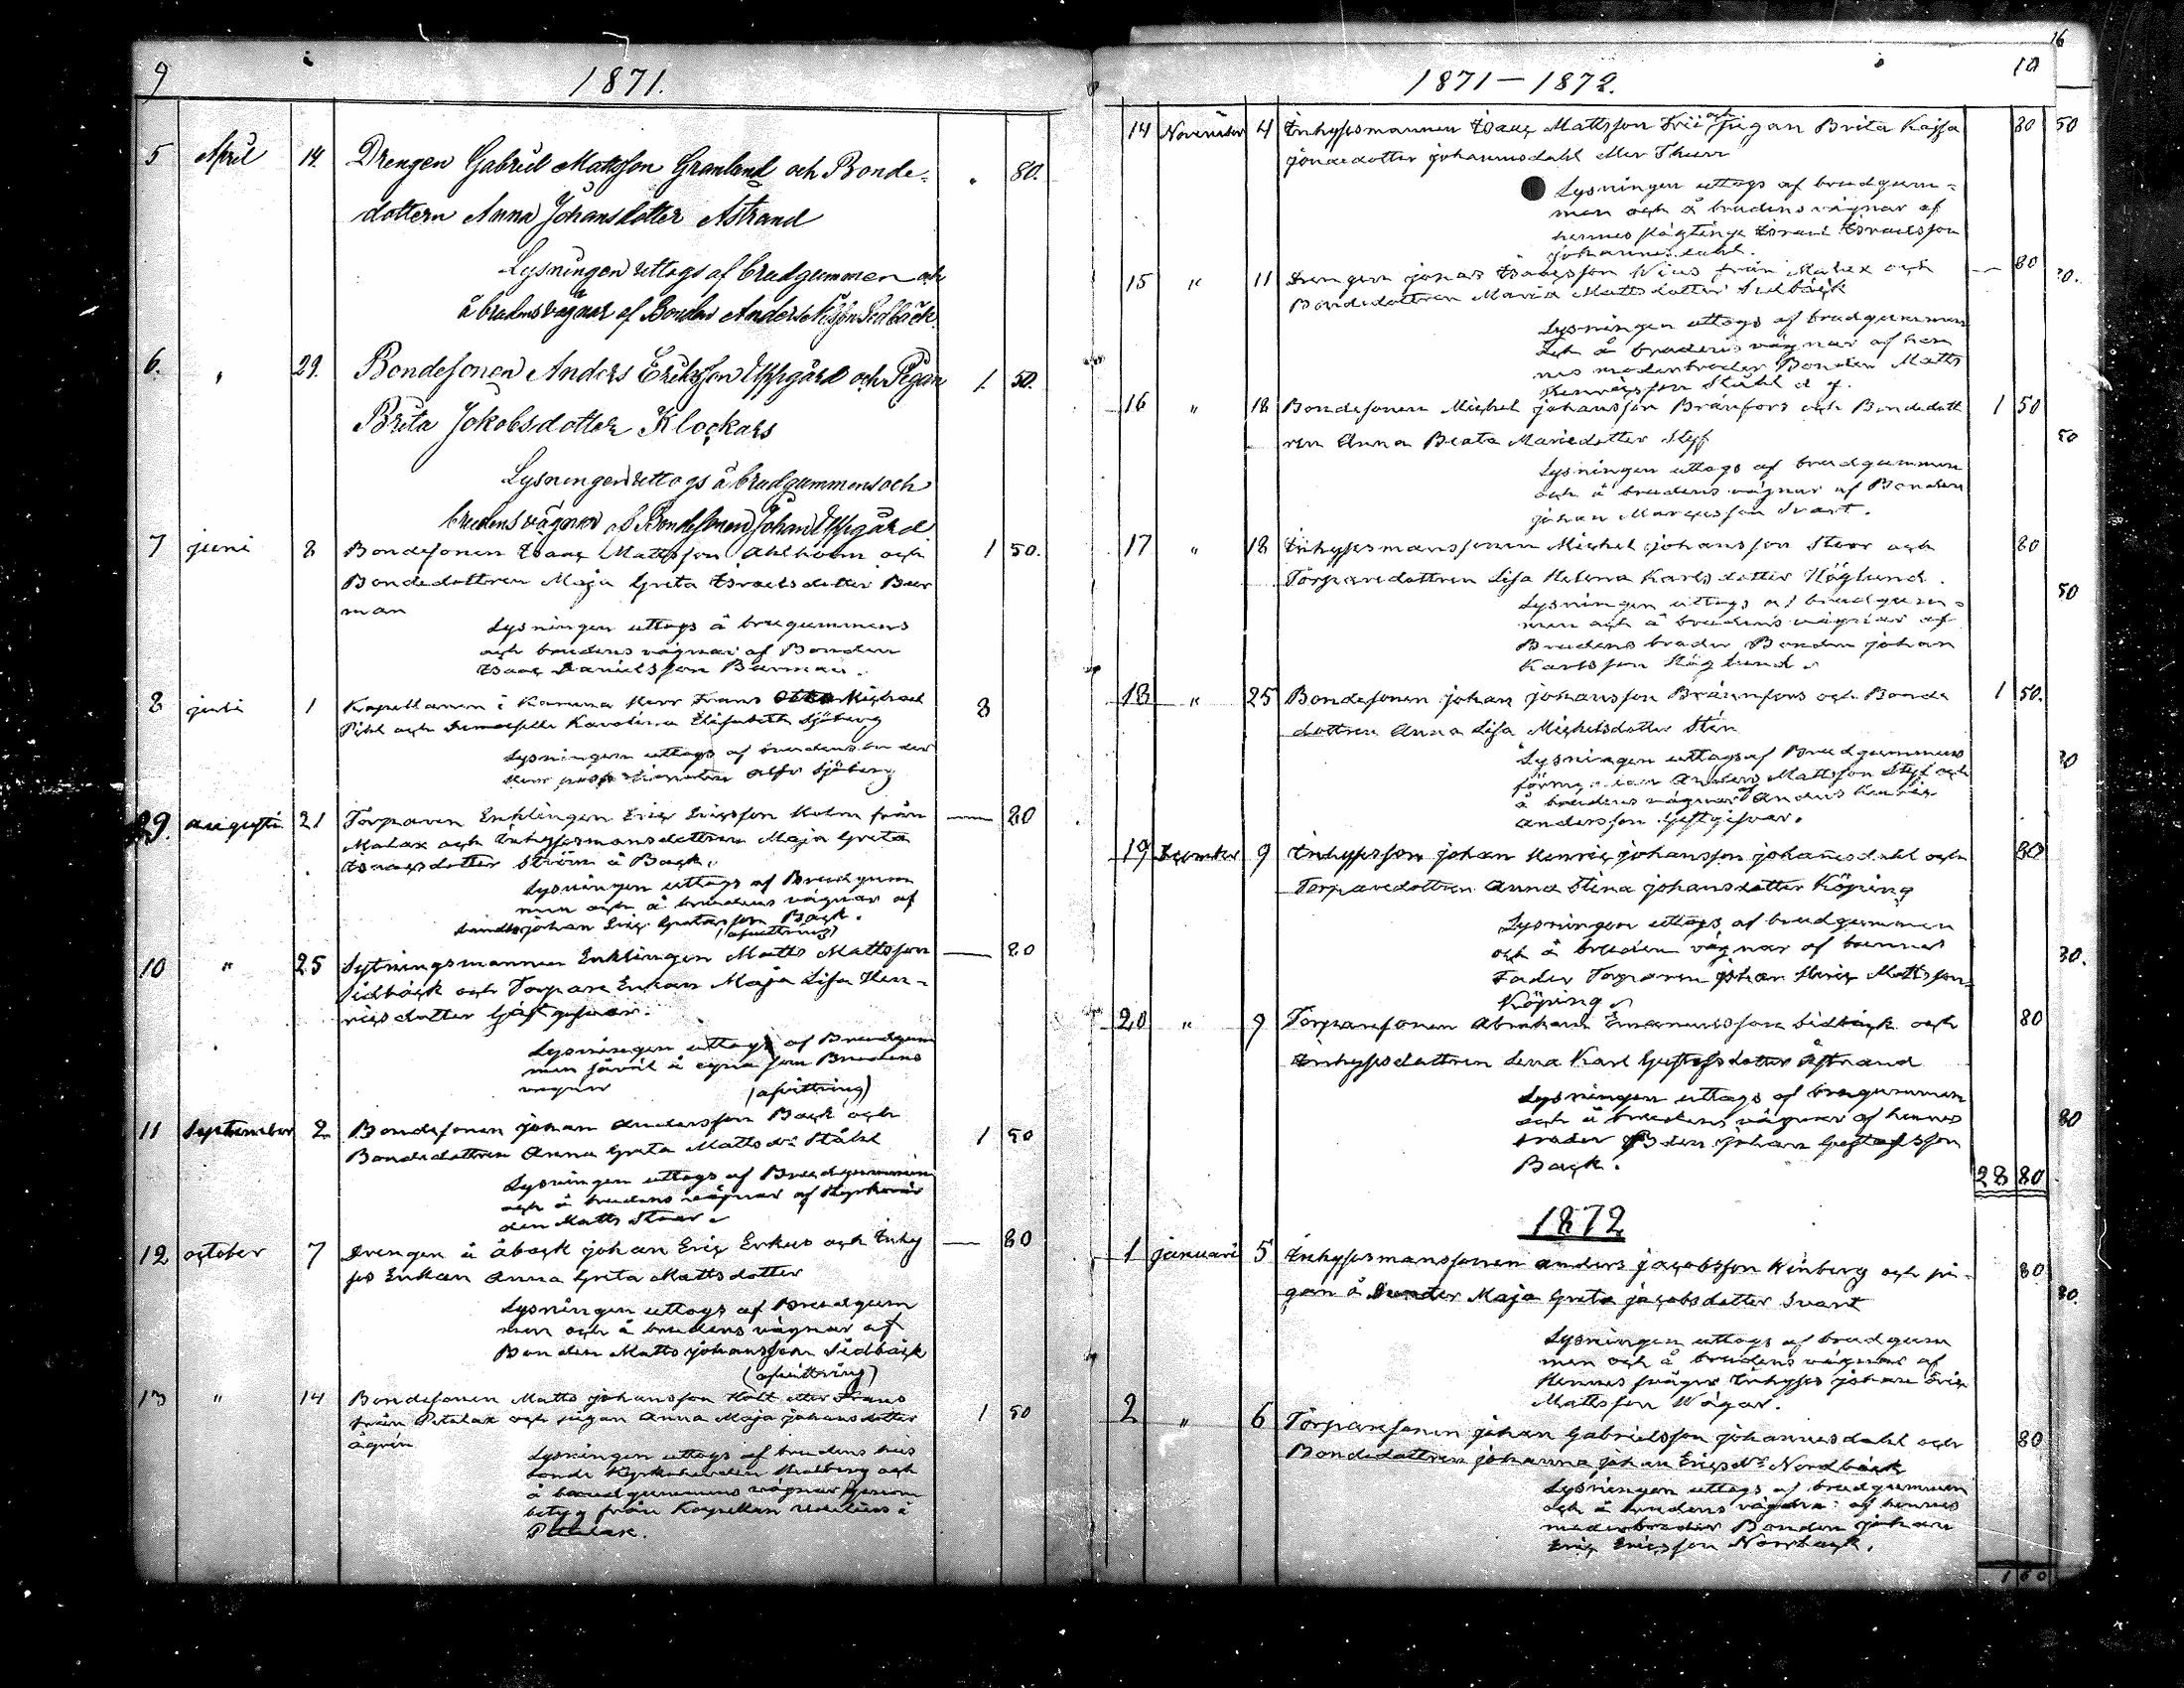 9
1871.
5 April 14. Drengen Gabriel Mattsson Granlund och Bonde- " 80.
dottern Anna Johansdotter Åstrand
Lysningen uttogs af brudgummen och
å brudens vägnar af Bonden Anders Sidbäck.
6. " 29. Bondesonen Anders Eriksson Uppgård och Pigan 1. 50.
Brita Jakobsdotter Klockars
Lysningen uttogs å brudgummens och
brudens vägnar af Bondesonen Johan Uppgård
7 juni 8 Bondesonen Isaac Mattsson Ahlholm och 1 50.
Bondedottren Maja Greta Israelsdotter Buer
man
Lysningen uttogs å brugummens
och brudens vägnar af Bonden
Isaac Danielsson Buerman.
8 juli 1 Kapellanen i Karuna Herr Frans Otto Michael 8
Pihl och Demoiselle Karolina Elisabeth Sjöberg
Lysningen uttogs af brudens
Herr Alfr Sjöberg
9. augusti 21 Torparen Enklingen Eric Ericsson Holm från — 80
Malax och Inhysesmansdottren Maja Greta
Isaacsdotter Ström å Back.
Lysningen uttogs af Brudgum
men och å brudens vägnar af
johan Eric Gustafsson Back.
(afvittring)
10 " 25 Sytningsmannen Enklingen Matts Mattsson — 80
Sidbäck och Torpare Enkan Maja Lisa Hen-
ricsdotter Gästgifvar.
Lysningen uttogs af Brudgum
men såväl å egna som Brudens
vägnar (afvittring)
11 September 2 Bondesonen johan Andersson Back och 1 50
Bondedottren Anna Greta Mattsdr Ståhl
Lysningen uttogs af Brudgummen
och å brudens vägnar af Kyrkovär
den Matts Stoor.
12 october 7 Drengen å Åback johan Eric Erkus och Inhy — 80
ses Enkan Anna Greta Mattsdotter
Lysningen uttogs af Brudgum
men och å brudens vägnar af
Bonden Matts johansson Sidbäck
(afvittring)
13 " 14 Bondesonen Matts johansson Holt eller Frans 1 50
från Petalax och pigan Anna Maja johansdotter
Ågren
Lysningen uttogs af brudens hus
bonde Kyrkoherden och
å brudgummens vägnar genom
betyg från Kapellan i
Petalax.
16
10
1871–1872.
14 November 4 Inhysesmannen Isaac Mattsson Frii och pigan Brita Kajsa 80
johannesdahl eller Thurr
Lysningen uttogs af brudgum-
men och å brudens vägnar af
hennes släktinge Israel Israelsson
johannesdahl.
15 " 11 Drengen jonas Isaacsson Nius från Malax och — 80
Bondedottren Maria Mattsdotter Sidbäck
Lysningen uttogs af brudgummen
och å brudens vägnar af hen
nes moderbroder Bonden Matts
Henricsson Ståhl
16 " 18 Bondesonen Michel johansson Brännfors och Bondedott 1 50
ren Anna Beata Mariedotter Styf
Lysningen uttogs af brudgummen
och å brudens vägnar af Bonden
johan Marcusson Svart.
17 " 18 Inhysesmanssonen Michel johansson Stoor och 80
Torparedottren Lisa Helena Karlsdotter Höglund.
Lysningen uttogs af brudgum-
men och å brudens vägnar af
Brudens broder Bonden johan
Karlsson Höglund.
18 " 25 Bondesonen johan johansson Brännfors och Bonde 1 50.
dottren Anna Lisa Michelsdotter Sten
Lysningen uttogs af Brudgummens
förmyndare Anders Mattsson Styf och
å brudens vägnar af Anders Henric
Andersson Gästgifvar.
19 December 9 Inhysesson johan Henric johansson johannesdahl och 80
Torparedottren Anna Stina johansdotter Köping
Lysningen uttogs af brudgummen
och å bruden vägnar af hennes
Fader Torparen johan Henric Mattsson
Köping
20 " 9 Torparesonen Abraham Emanuelsson Sidbäck och 80
Inhysesdottren Lena Karl Gustafsdotter Åstrand
Lysningen uttogs af brugummen
och å brudens vägnar af hennes
broder Bonden johan Gustafsson
Back.
28 80
1872
1 januari 5 Inhysesmanssonen Anders jacobsson Winberg och pi- 80
gan å Sunder Maja Greta jacobsdotter Svart
Lysningen uttogs af brudgum
men och å brudens vägnar af
Hennes svåger Inhyses johan Eric
Mattsson Wägar.
2 " 6 Torparesonen johan Gabrielsson johannesdahl och 80
Bondedottren johanna johan Ericsdr Nordbäck
Lysningen uttogs af brudgummen
och å brudens vägnar af hennes
moderbroder Bonden johan
Eric Ericsson Norrback.
1 60
50
30.
50
50
30
30.
80
30.